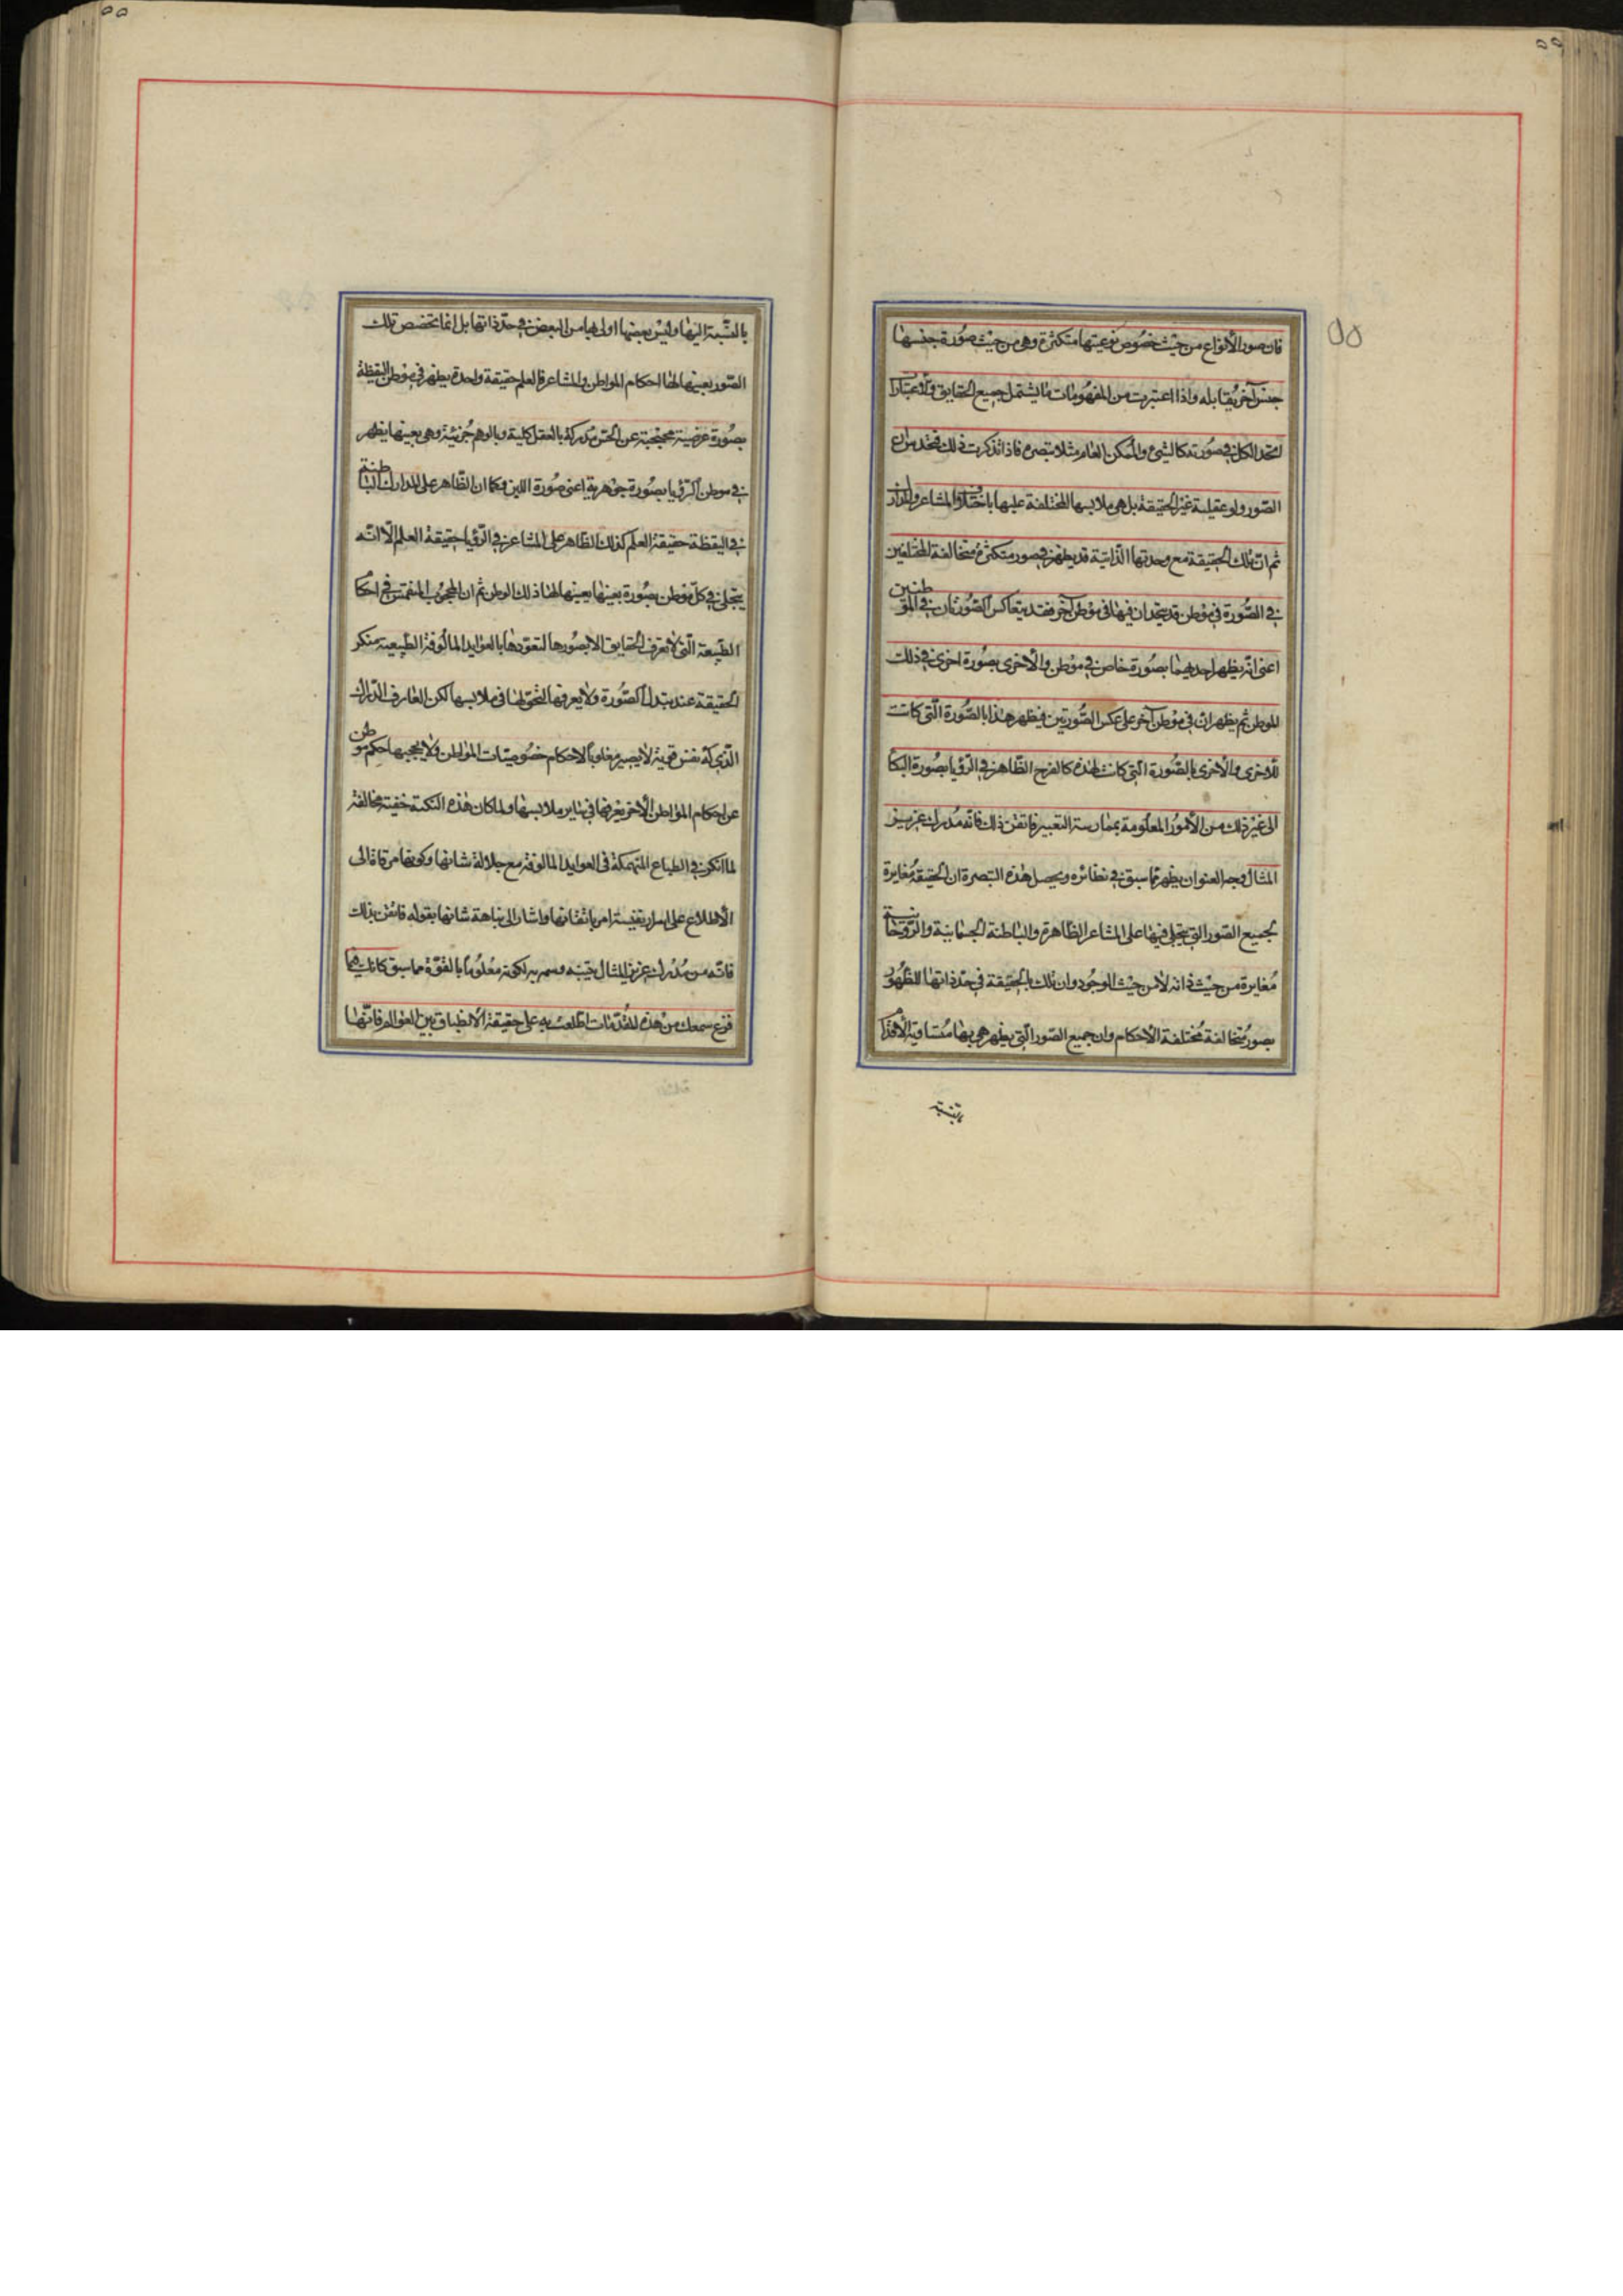 ٥٥
55
فان صور الأنواع من حيث خصوص نوعيتها متكثرة وهي من حيث صورة جنسها
جنس آخر يقابله واذا اعتبرت من المفهومات ما يشتمل جميع الحقايق والاعتبارا
اتحد الكل في صورته كالشيء والممكن العام مثلا تبصرة فاذا تذكرت ذلك
الصور ولو عقلية غير الحقيقة بل هي ملابسها المختلفة عليها باختلاف المشاعر والمدارك
ثم ان تلك الحقيقة مع وحدتها الذاتية قد يظهر في صور متكثرة متخالفة
في الصورة في موطن قد يتحدان فيها في موطن آخر فقد يتعاكس الصورتان في الموطنين
اعني انه يظهر احديهما بصورة خاص في موطن والأخرى بصورة اخرى في ذلك
الموطن ثم يظهران في موطن آخر على عكس الصورتين فيظهر هذا بالصورة التي كانت
للاخرى والأخرى بالصورة التي كانت لهذه كالفرح الظاهر في الرؤيا بصورة البكا
الى غير ذلك من الأمور المعلومة بممارسة التعبير فاتقن ذلك فانه مدرك عزيز
المثال وجه العنوان يظهر مما سبق في نظائره ويحصل هذه التبصرة ان الحقيقة مغايرة
لجميع الصور التي يتجلى فيها على المشاعر الظاهرة والباطنة الجسمانية والروحانية
مغايرة من حيث ذاته لا من حيث الوجود وان تلك الحقيقة في حد ذاتها الظهور
بصور متخالفة مختلفة الأحكام وان جميع الصور التي يظهر هي بها متساوية الأقدا
٥٥
بالنسبة اليها وليس بعضها اولى بها من البعض في حد ذاتها بل انما تخصص تلك
الصور بعينها لها احكام المواطن والمشاعر فالعلم حقيقة واحدة يظهر في موطن اليقظة
بصورة عرضية محتجبة عن الحس مدركة بالعقل كلية وبالوهم جزئية وهي بعينها يظهر
في موطن الرؤيا بصورة جوهرية اعني صورة اللبن وكما ان الظاهر على المدارك الباطنة
في اليقظة حقيقة العلم كذلك الظاهر على المشاعر في الرؤيا حقيقة العلم الا انه
يتجلى في كل موطن بصورة بعينها يعينها لها ذلك الموطن ثم ان المحجوب المنغمس في احكا
الطبيعة التي لا تعرف الحقايق الا بصورها لتعودها بالعوايد المالوفة الطبيعية منكر
الحقيقة عند تبدل الصورة ولا يعرفها لتحولها في ملابسها لكن العارف الدراك
الذي له نفس قدسية لا يصير مغلوبا لاحكام خصوصيات المواطن ولا يحجبها حكم موطن
عن احكام المواطن الأخر يعرفها في ساير ملابسها ولما كان هذه النكتة خفية مخالفة
لما انكن في الطباع المنهمكة في العوايد المالوفة مع جلالة شانها وكونها مرقاة الى
الاطلاع على اسرار نفيسة امر باتقانها واشار الى نباهة شانها بقوله فاتقن ذلك
فانه من مدرك عزيز المثال تنبيه وسم به لكونه معلوما بالقوة مما سبق
قرع سمعك من هذه المقدمات اطلعت به على حقيقة الانطباق بين العوالم فانها